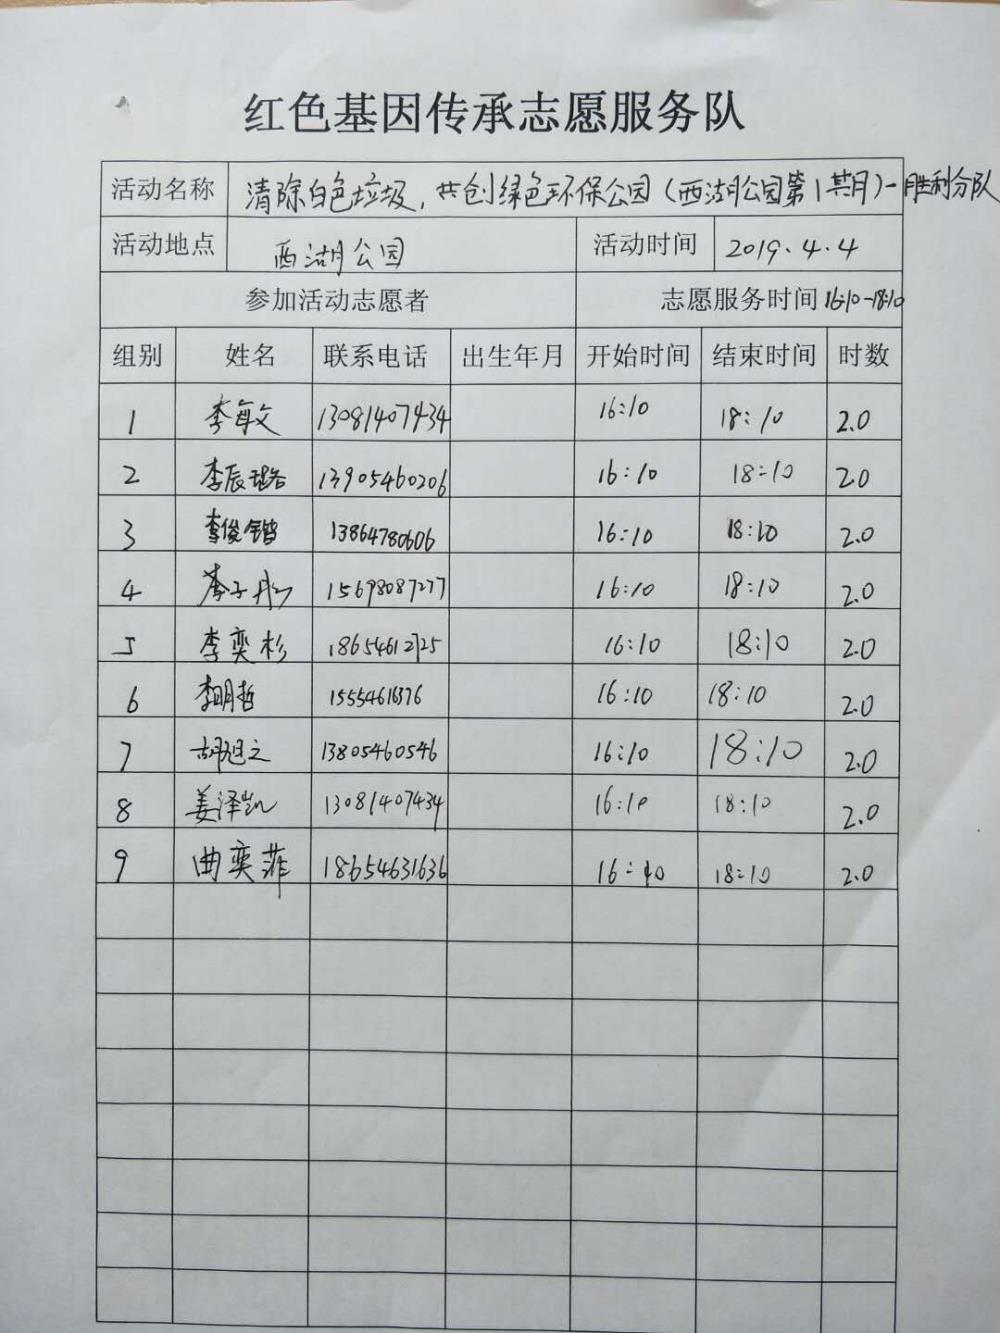 红色基因传承志愿服务队
活动名称 清除白色垃圾，共创绿色环保公园（西湖公园第1期）-胜利分队
活动地点 西湖公园 活动时间 2019.4.4
参加活动志愿者 志愿服务时间 16:10-18:10
组别 姓名 联系电话 出生年月 开始时间 结束时间 时数
1 李敏文 13081407434 16:10 18:10 2.0
2 李辰璐 13905460206 16:10 18:10 2.0
3 李俊锴 13864780606 16:10 18:10 2.0
4 李子彤 15698087277 16:10 18:10 2.0
5 李奕杉 18654612725 16:10 18:10 2.0
6 李明哲 16:10 18:10 2.0
7 胡旭之 13805460546 16:10 18:10 2.0
8 姜泽凯 13081407434 16:10 18:10 2.0
9 曲奕菲 18654631636 16:10 18:10 2.0